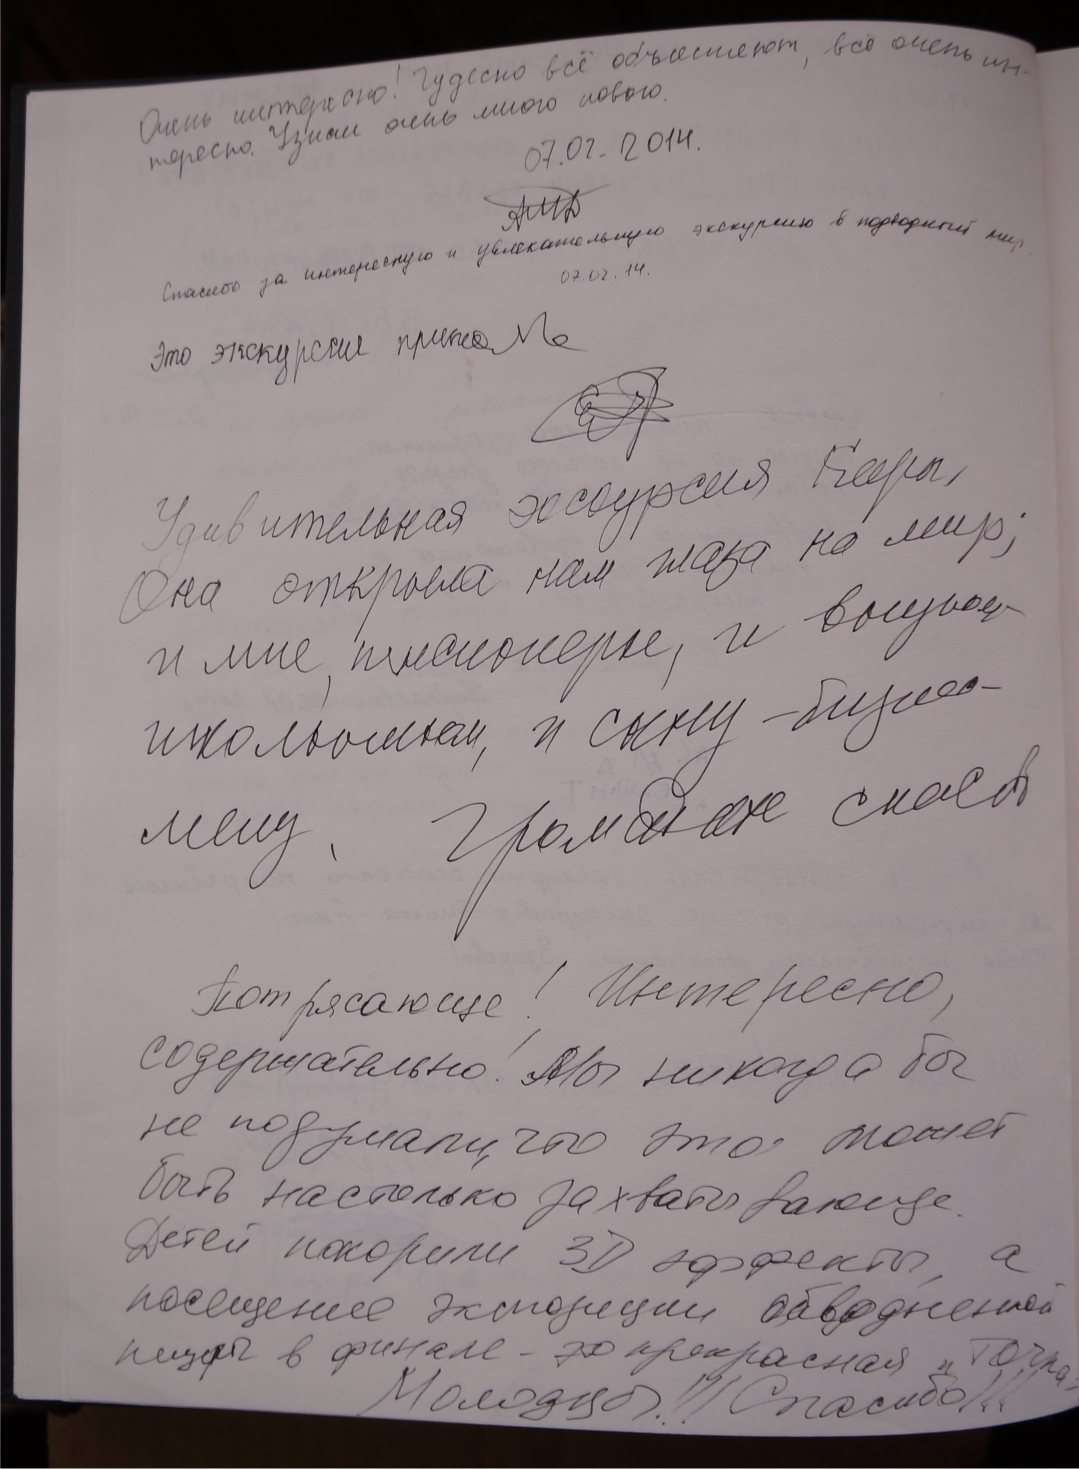 Очень интересно! Чудесно всё объясняют, всё очень ин-
тересно. Узнали очень много нового.
07.02.2014.
Спасибо за интересную и увлекательную экскурсию в подводный мир.
07.02.14.
Это экскурсия
Удивительная экскурсия
Она открыла нам глаза на мир;
и мне, пенсионерке, и
школьникам, и сыну - бизнес-
мену. Громадное спасибо
Потрясающе! Интересно,
содержательно! Мы никогда бы
не подумали, что это может
быть настолько захватывающе.
Детей покорили 3D эффекты, а
посещение экспозиции обводненной
пещеры в финале - это прекрасная точка.
Молодцы!!! Спасибо!!!